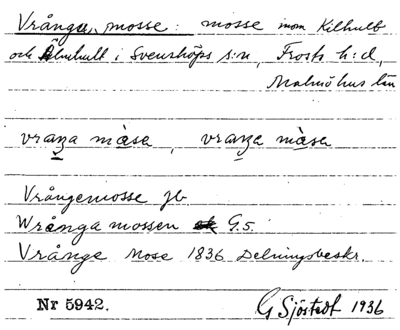 Vrånga mosse: mosse inom Kilhult
och Älmhult i Svensköps s:n, Frosta h:d,
Malmöhus län
vraŋa màsa, vraŋa màsa
Vrångemosse jb
Wrånga mossen G.5.
Vrånge Mose 1836 Delningsbeskr.
Nr 5942. G Sjöstedt 1936